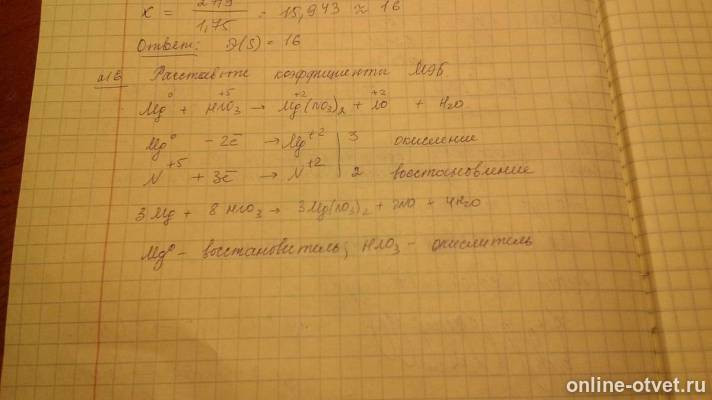 X = 279/1,75 = 15,943 ≈ 16
Ответ: Э(S) = 16
Расставьте коэффициенты МЭБ.
Mg⁰ + HN⁺⁵O₃ → Mg⁺²(NO₃)₂ + N⁺²O + H₂O
Mg⁰ - 2ē → Mg⁺² | 3 окисление
N⁺⁵ + 3ē → N⁺² | 2 восстановление
3Mg + 8HNO₃ → 3Mg(NO₃)₂ + 2NO + 4H₂O
Mg⁰ - восстановитель; HNO₃ - окислитель
online-otvet.ru